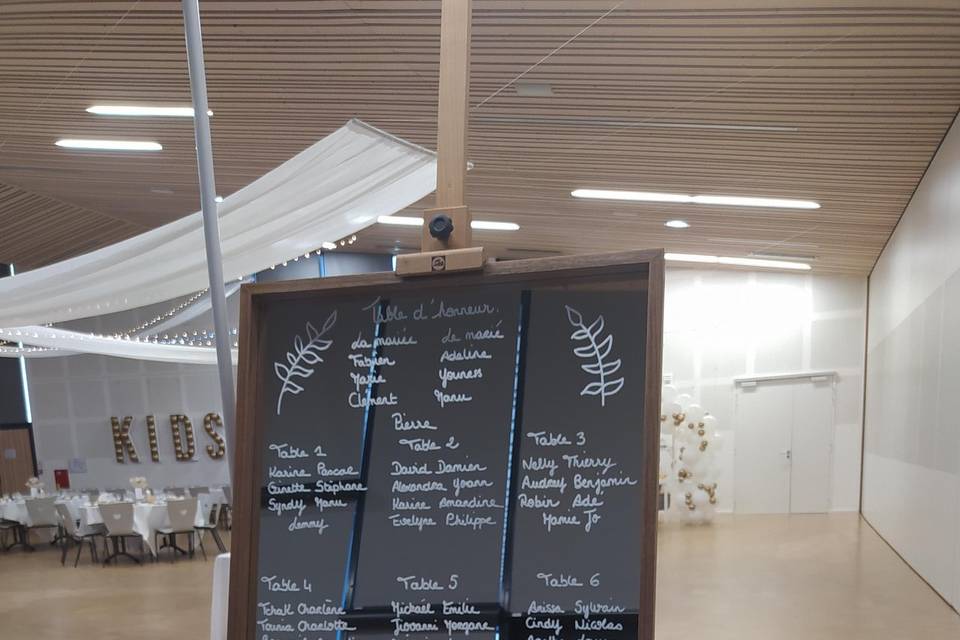 KIDS
Table d'honneur.
La mariée Le marié
Fabien Adeline
Marie Youness
Clément Manu
Pierre
Table 1
Karine Pascae
Ginette Stiphane
Syndy Manu
Jemmy
Table 2
David Damien
Alexandra Yoann
Karine Amandine
Evelyne Philippe
Table 3
Nelly Thierry
Audrey Benjamin
Robin Adé
Marie Jo
Table 4
Charlène
Charlotte
Table 5
Mickaël Emilie
Jiovanni Morgane
Table 6
Anissa Sylvain
Cindy Nicolas